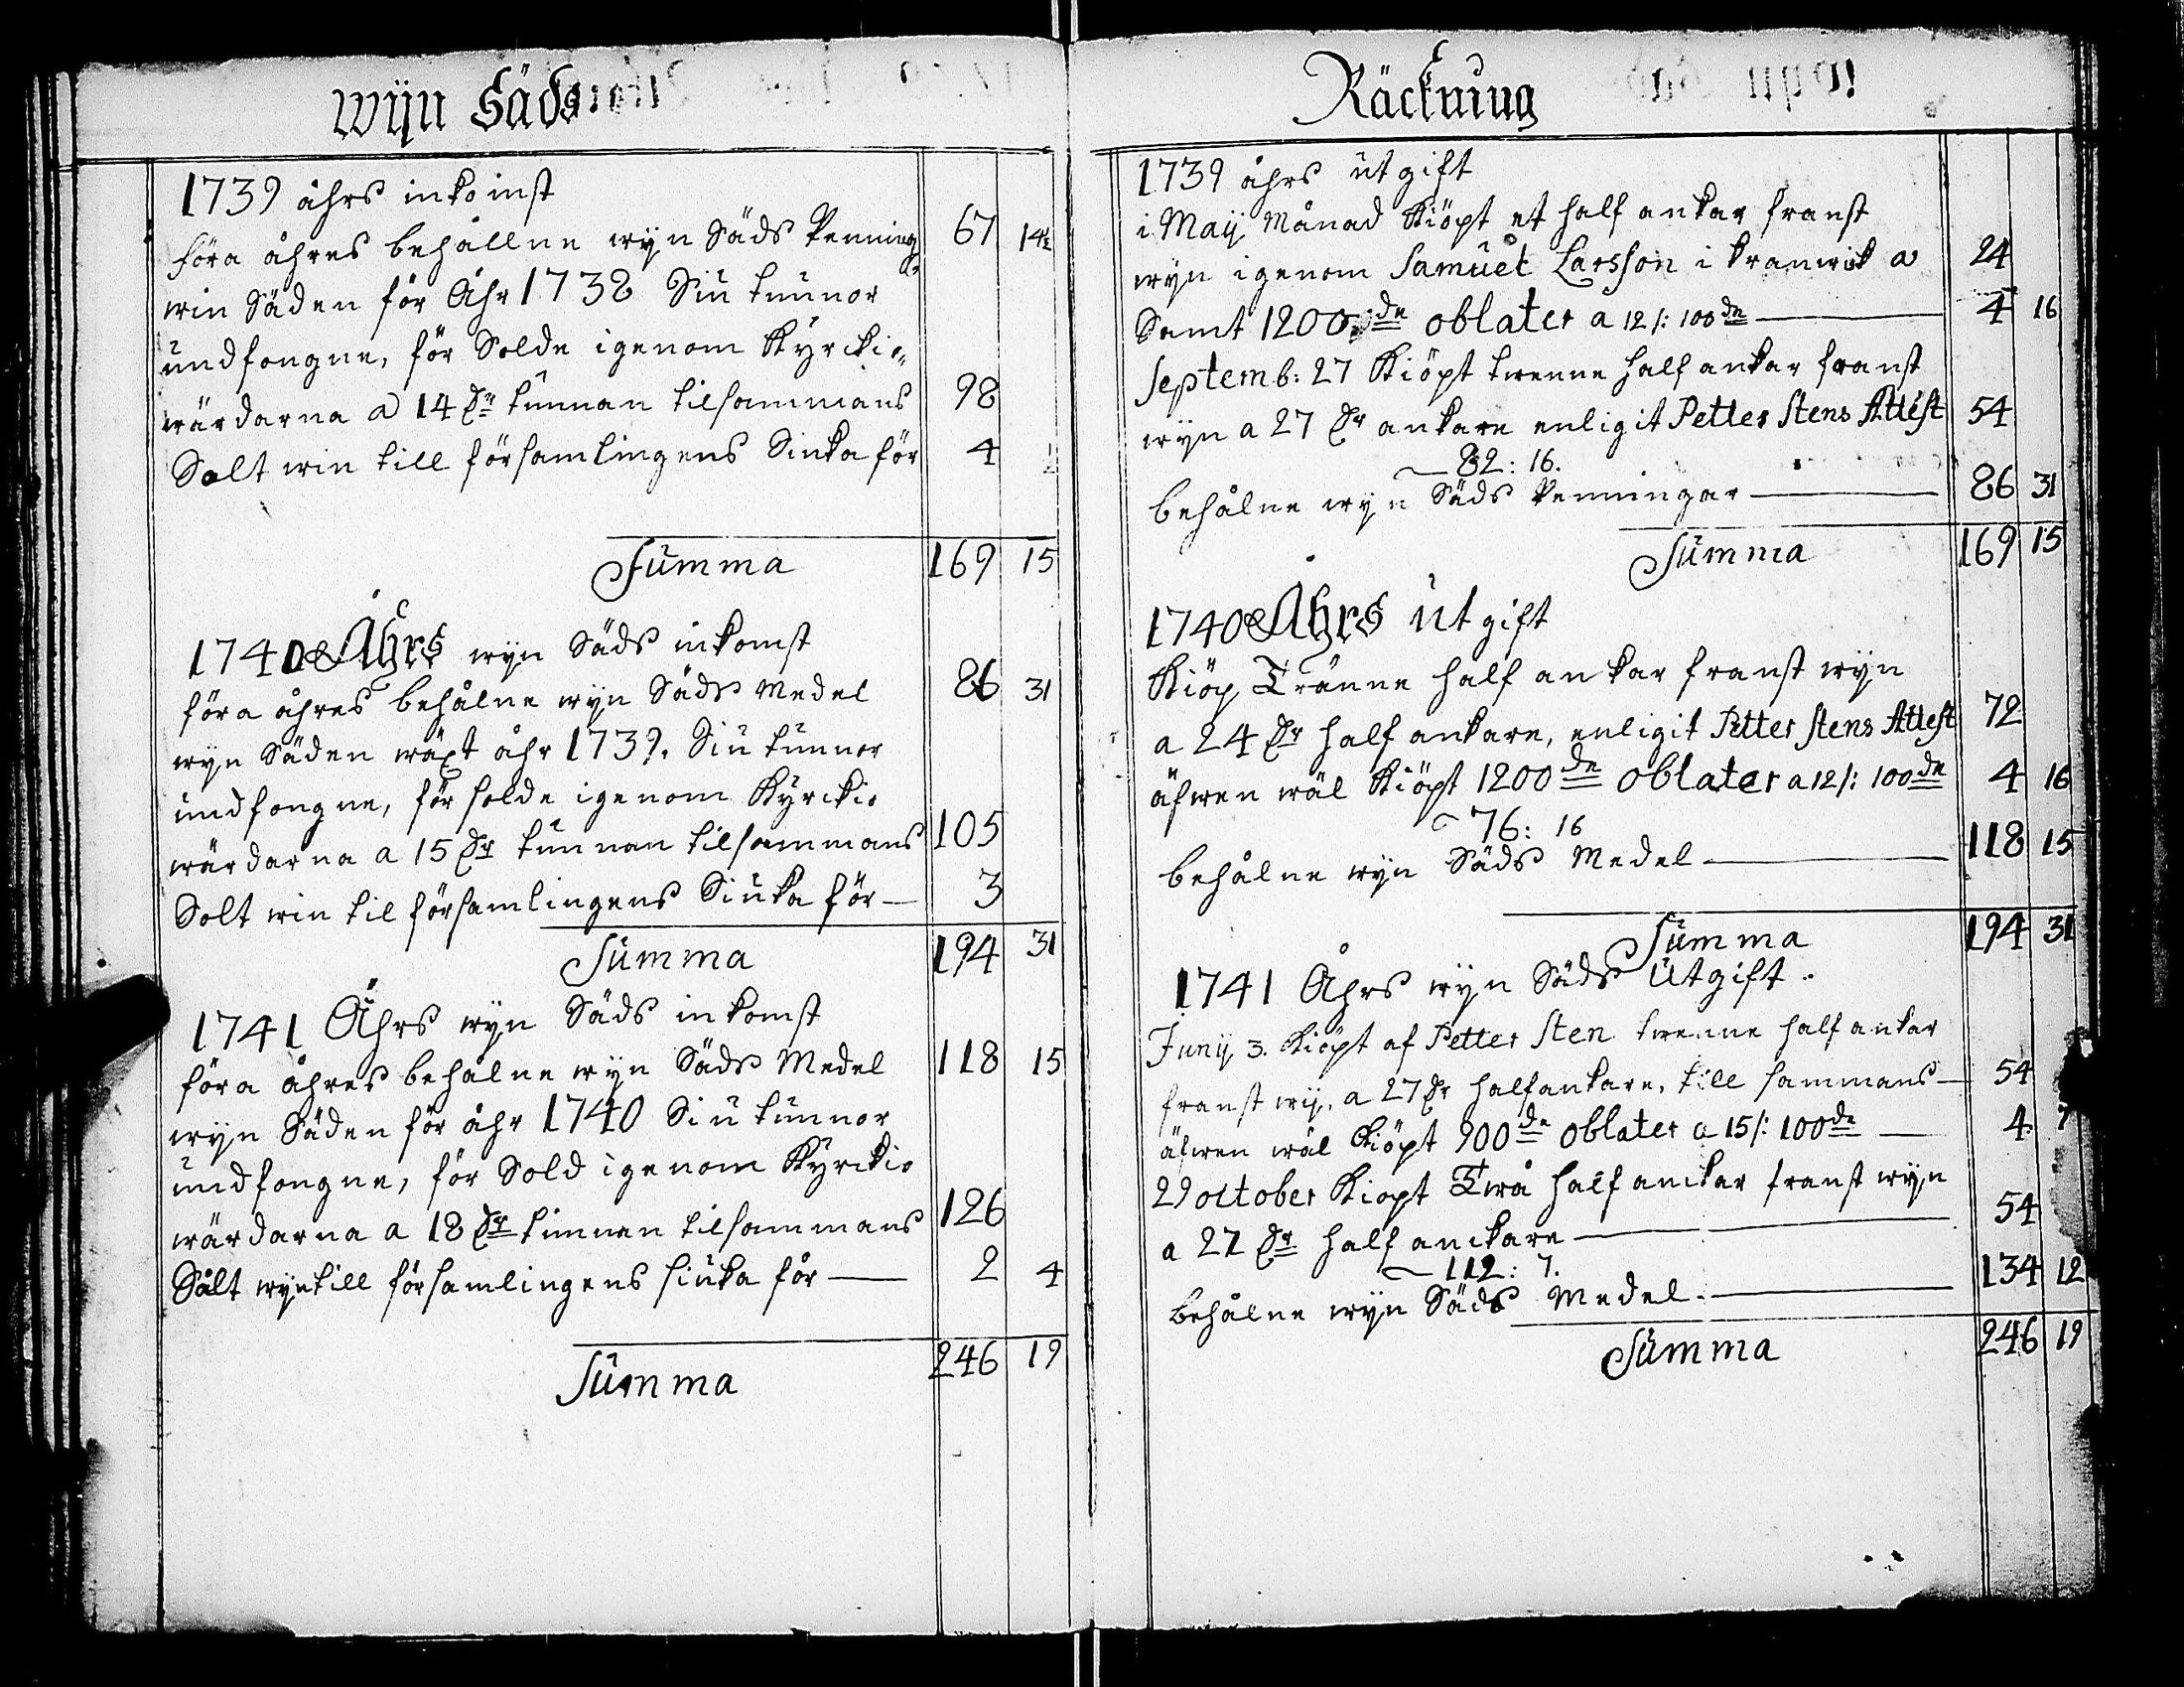 wijn Säds
1739 åhrs inkomst
föra åhres behållne wijn Säds Penning 67 14½
win Säden för Åhr 1738 Siu tunnor
undfongne, för Solde igenom Kyrckio
wärdarna a 14 Dr tunnan tilsammans 98
Solt win till församlingens Siuka för 4 ½
Summa 169 15
1740 Åhrs wijn Säds inkomst
föra åhres behålne wijn Säds Medel 86 31
wijn Säden wäxt åhr 1739. Siu tunnor
undfongne, försolde igenom Kyrckio
wärdarna a 15 Dr tunnan tilsammans 105
Solt win til församlingens Siuka för 3
Summa 194 31
1741 Åhrs wijn Säds inkomst
föra åhres behålne wijn Säds Medel 118 15
wijn Säden för åhr 1740 Siu tunnor
undfongne, för Sold igenom Kyrckio
wärdarna a 18 Dr tunnan tilsammans 126
Sålt wijn till församlingens siuka för 2 4
Summa 246 19
Räckning
1739 åhrs utgift
i Maij Månad Kiöpt et half ankar franst
wijn igenom Samuel Larsson i kranwik a 24
Samt 1200de oblater a 12 /: 100de 4 16
Septemb: 27 Kiöpt twenne half ankar franst
wijn a 27 Dr ankare enligit Petter Stens Attest 54
82: 16.
behålne wijn Säds Penningar 86 31
Summa 169 15
1740 Åhrs utgift
Kiöp Tränne half ankar franst wijn
a 24 Dr half ankare, enligit Petter Stens Attest 72
äfwen wäl Kiöpt 1200de Oblater a 12 /: 100de 4 16
76: 16
behålne wijn Säds Medel 118 15
Summa 194 31
1741 Åhrs wijn Säds Utgift.
Junij 3. Kiöpt af Petter Sten twenne half ankar
franst wij, a 27 Dr halfankare, till sammans 54
äfwen wäl Kiöpt 900de Oblater a 15 /: 100de 4. 7
29 october Kiopt Twå half anckar franst wijn
a 27 Dr half anckare 54
112: 7.
behålne wijn Säds Medel. 134 12
Summa 246 19